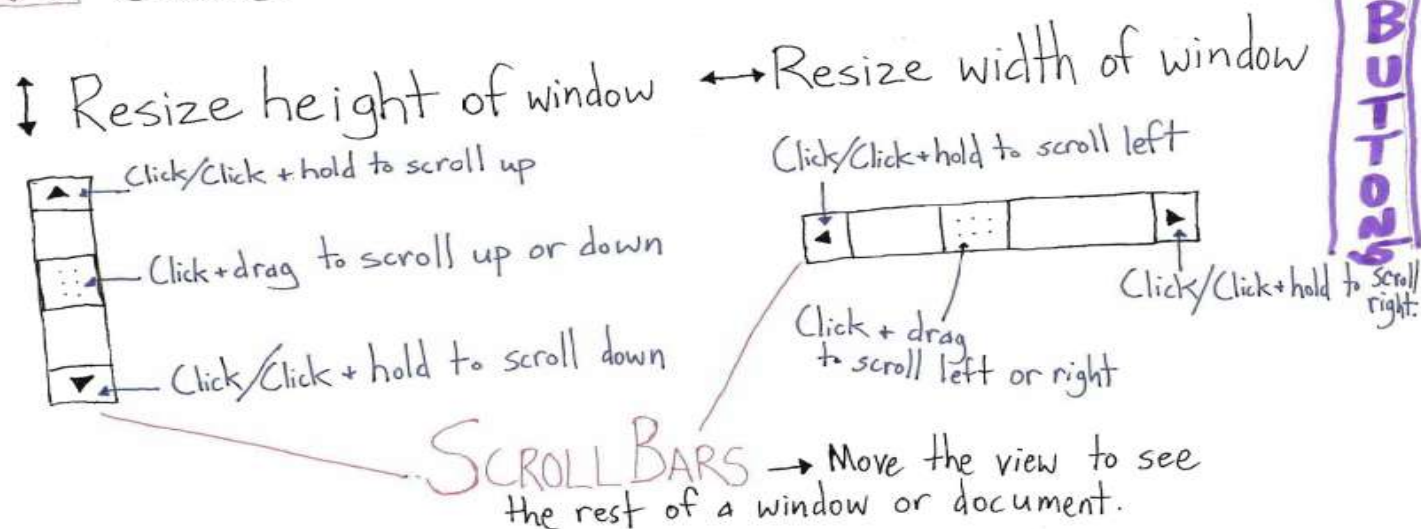 ↕ Resize height of window
↔ Resize width of window
Click/Click + hold to scroll up
Click + drag to scroll up or down
Click/Click + hold to scroll down
Click/Click + hold to scroll left
Click + drag
to scroll left or right
Click/Click + hold to scroll
right.
SCROLL BARS → Move the view to see
the rest of a window or document.
BUTTONS